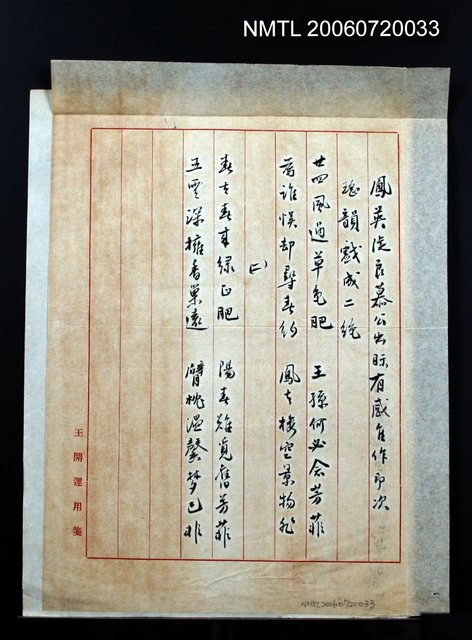 NMTL 20060720033
鳳英從良慕公出眎有感佳作即次
瑤韻戲成二絕
廿四風過草色肥 王孫何必念芳菲
為誰悞却尋春約 鳳去樓空景物非
(二)
春去春來綠正肥 陽春難覓舊芳菲
玉雲深擁香巢遠 臂枕溫馨夢已非
王開運用箋
NMTL20060720033